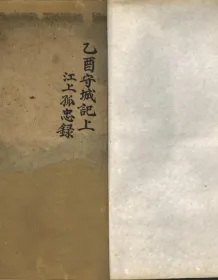 乙酉守城記上
江上孤忠錄